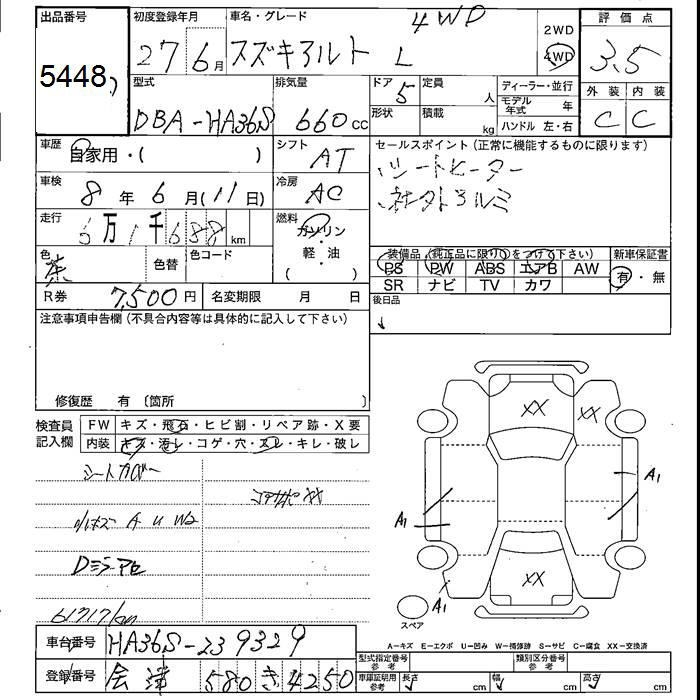 出品番号
5448
初度登録年月
27 6月
車名・グレード
4WD
スズキアルト L
2WD
4WD
評価点
3.5
外装 内装
C C
型式
DBA-HA36S
排気量
660cc
ドア
5
形状
定員
人
積載
kg
ディーラー・並行
モデル年式 年
ハンドル 左・右
車歴
自家用・( )
シフト
AT
セールスポイント(正常に機能するものに限ります)
シートヒーター
社外アルミ
車検
8年 6月(11日)
冷房
AC
走行
6万1千688km
燃料
ガソリン
・
軽・油
( )
色
茶
色替
色コード
装備品(純正品に限り○をつけて下さい)
PS PW ABS エアB AW
SR ナビ TV カワ
新車保証書
有・無
R券 7,500円
名変期限 月 日
後日品
注意事項申告欄(不具合内容等は具体的に記入して下さい)
修復歴 有 〔箇所 〕
検査員記入欄
FW キズ・飛石・ヒビ割・リペア跡・X要
内装 キズ・汚レ・コゲ・穴・スレ・キレ・破し
シートカバー
コアサポXX
小キズ A U W2
61717km
XX
XX
XX
A1
A1
A1
スペア
A=キズ E=エクボ U=凹み W=補修跡 S=サビ C=腐食 XX=交換済
車台番号
HA36S-239329
登録番号
会津 580 き 4250
型式指定番号
参考
類別区分番号
参考
車庫証明用
参考
長さ cm
幅 cm
高さ cm